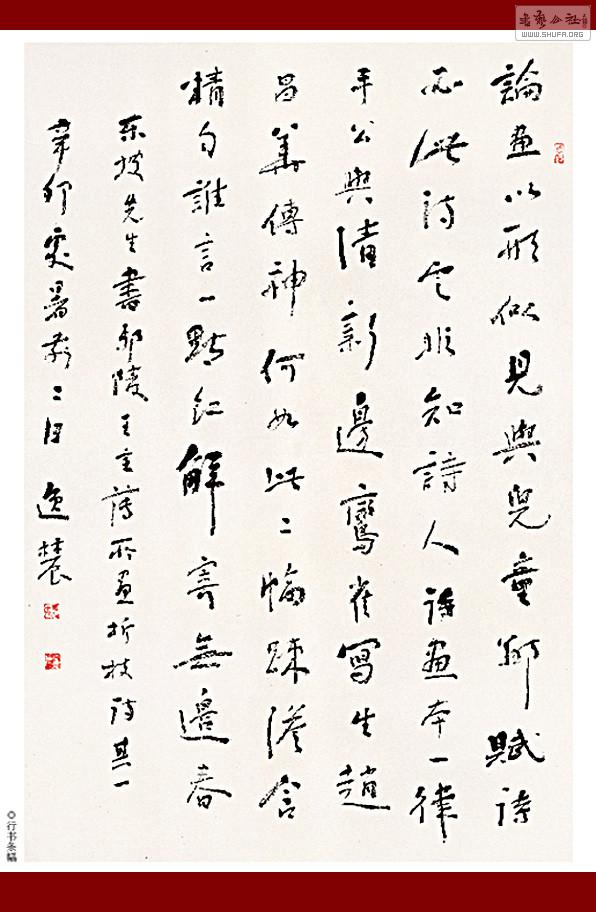 書藝公社
WWW.SHUFA.ORG
論畫以形似見與兒童鄰賦詩
必此詩定非知詩人詩畫本一律
天公與清新邊鸞雀寫生趙
昌華傳神何如此二幅疎澹含
精勻誰言一點紅解寄無邊春
東坡先生書鄢陵王主簿所畫折枝詩其一
辛卯處暑前二日逸農
◎行书条幅